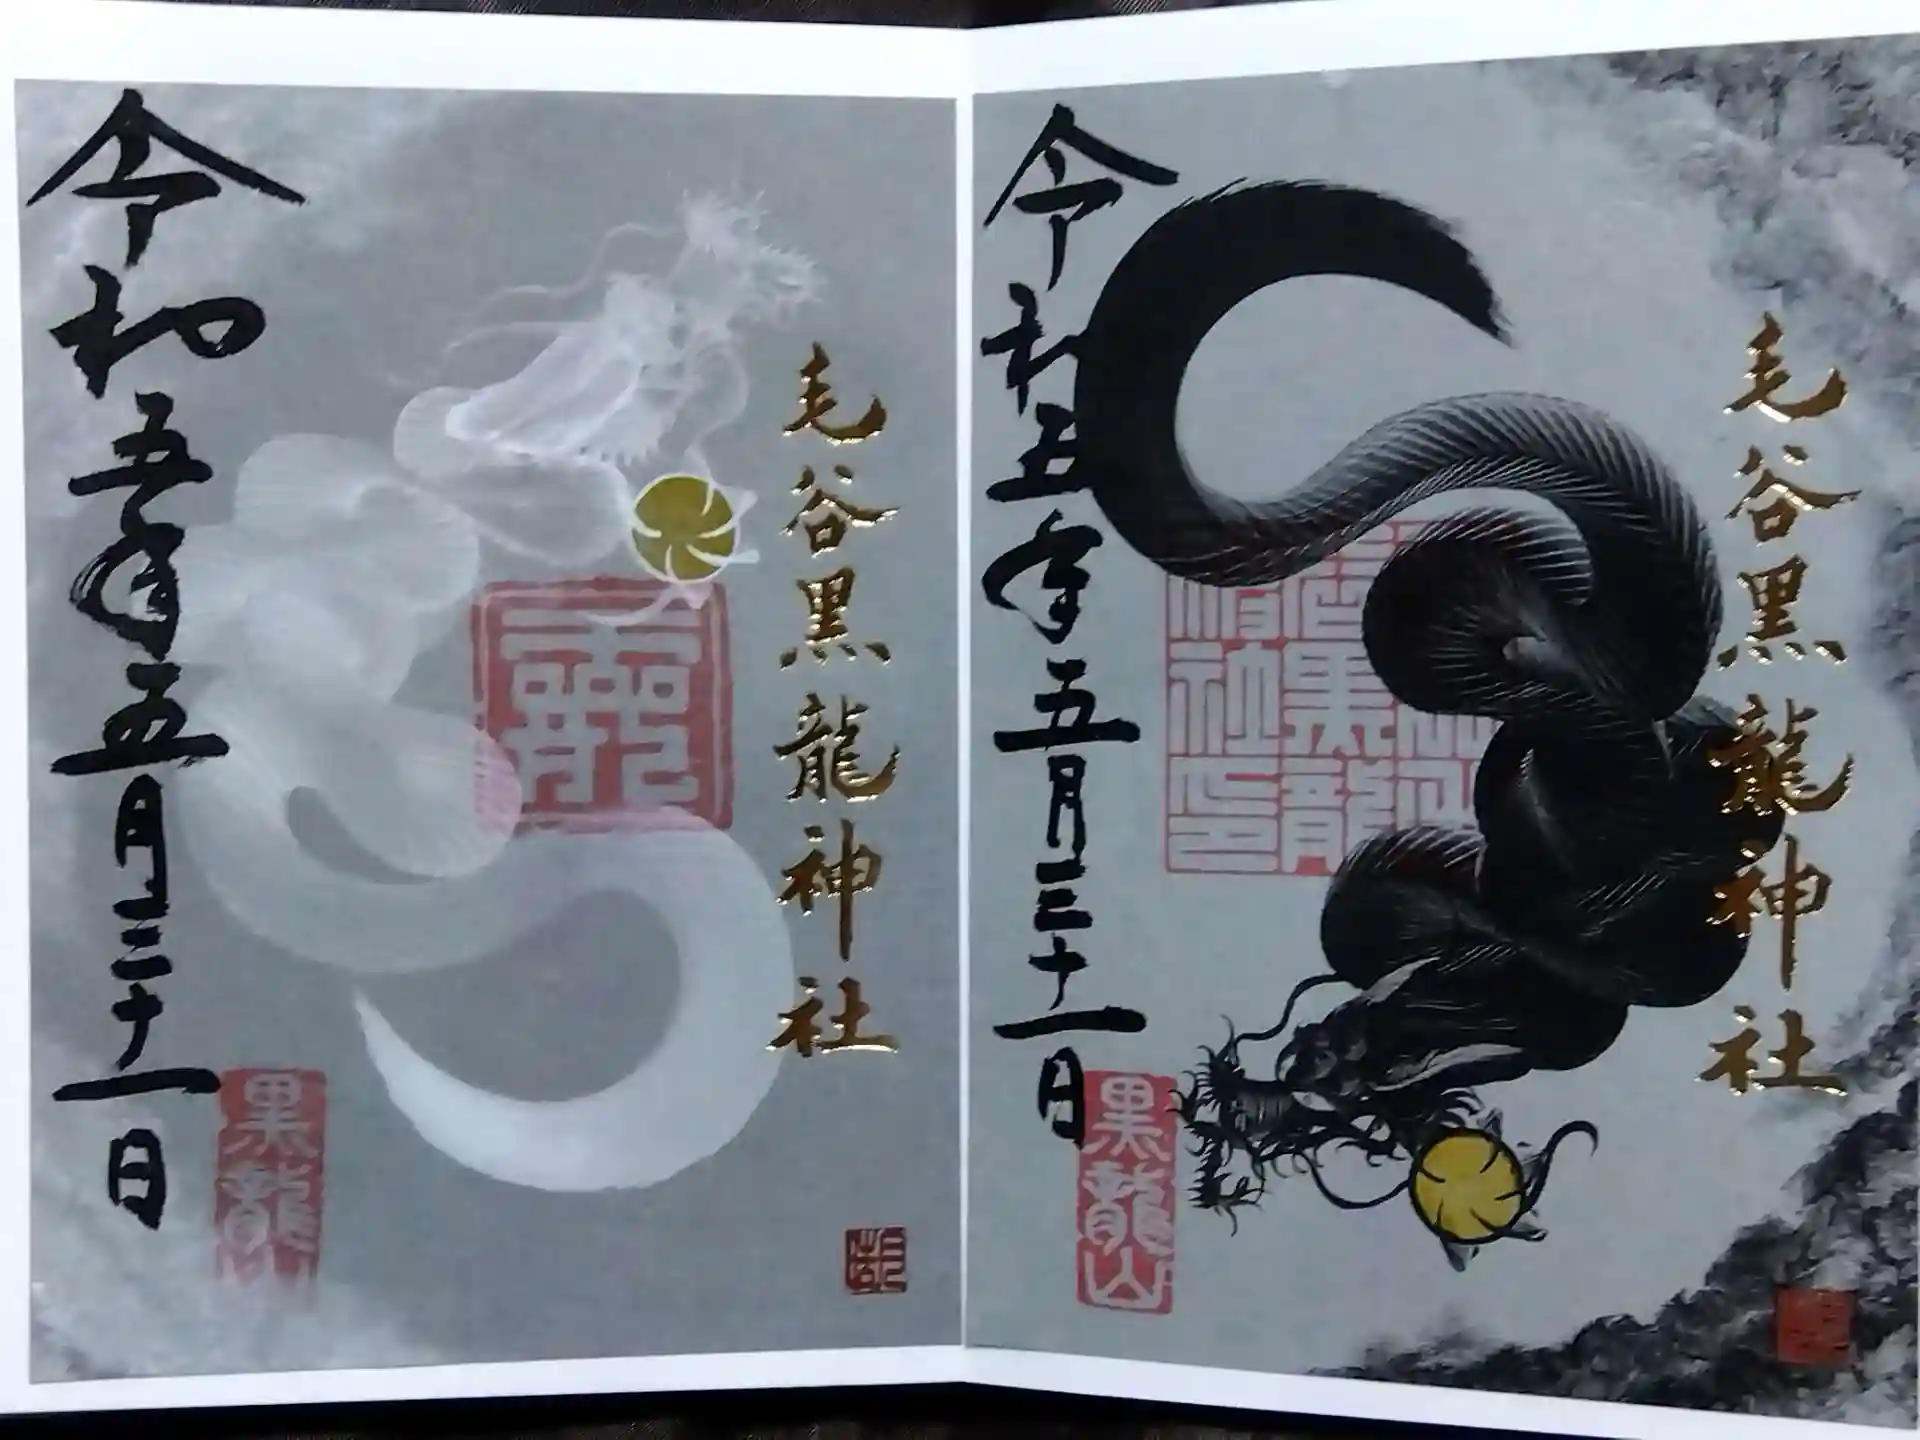 毛谷黒龍神社
令和五年五月三十一日
黒龍
毛谷黒龍神社
令和五年五月三十一日
黒龍山